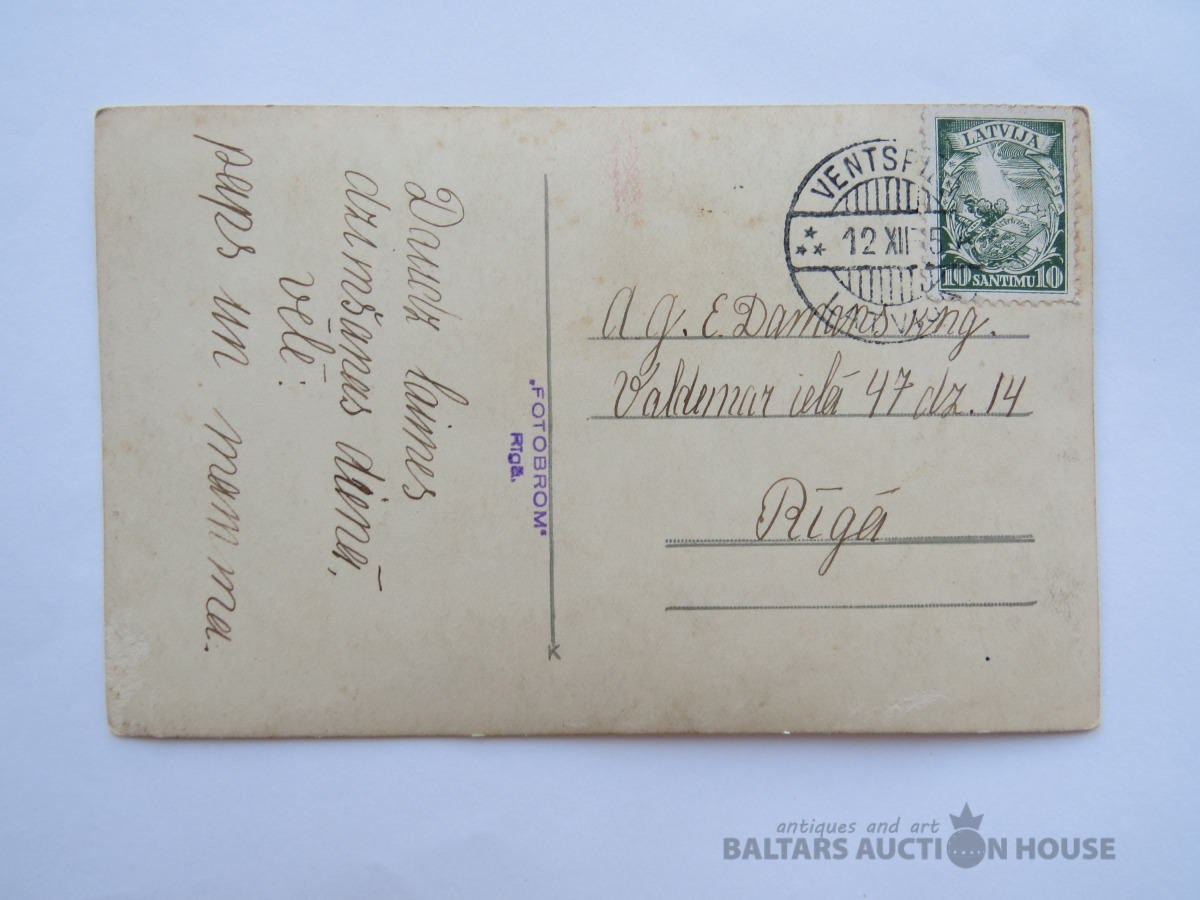 Daudz laimes
dzimšanas dienā,
vēlē:
paps un mamma.
"FOTOBROM"
Rīgā.
K
LATVIJA
10 SANTIMU 10
VENTSP
12 XII 35
A g. E. Damans kng.
Valdemar ielā 47 dz. 14
Rīgā
antiques and art
BALTARS AUCTION HOUSE